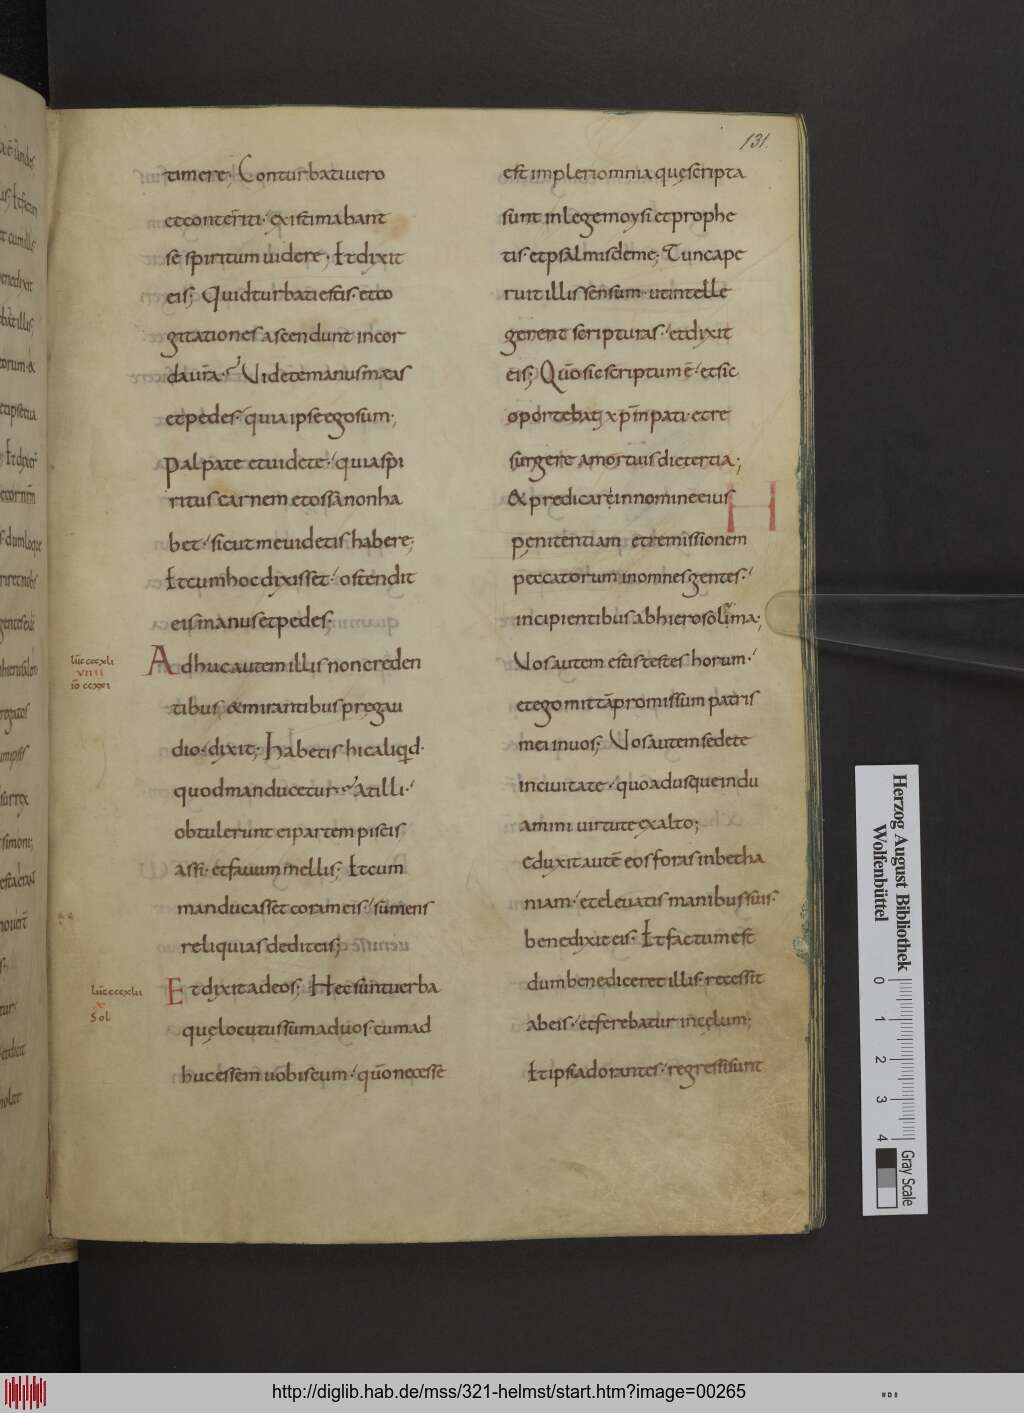 131.
timere; Conturbati uero
et conteriti· existimabant
se spiritum uidere· Et dixit
eis; Quid turbati estis· et co
gitationes ascendunt in cor
da ur̄a· Videte manus meas
et pedes· quia ipse ego sum·
Palpate et uidete· quia spi
ritus carnem et ossa non ha
bet· sicut me uidetis habere;
Et cum hoc dixisset· ostendit
eis manus et pedes·
Adhuc autem illis non creden
tibus· & mirantibus prę gau
dio· dixit; Habetis hic aliqd·
quod manducetur· At illi·
obtulerunt ei partem piscis
assi· et fauum mellis; Et cum
manducasset coram eis· sumens
reliquias dedit eis;
Et dixit ad eos; Hec sunt uerba
que locutus sum ad uos· cum ad
huc essem uobiscum· quo necesse
luc cccxli
viiii
io ccxxi
luc cccxlii
x
Sol
est impleri omnia que scripta
sunt in lege moysi et prophe
tis· et psalmis de me; Tunc ape
ruit illis sensum· ut intelle
gerent scripturas· et dixit
eis; Quo sic scriptum ē· et sic
oportebat xpm pati· et re
surgere a mortuis die tertia;
& predicari in nomine eius
H
penitentiam et remissionem
peccatorum in omnes gentes·
incipientibus ab hierosolima;
Vos autem estis testes horum·
et ego mittā promissum patris
mei in uos; Vos autem sedete
in ciuitate· quoadusque indu
amini uirtute ex alto;
Eduxit autē eos foras in betha
niam· et eleuatis manibus suis·
benedixit eis· Et factum est
dum benediceret illis· recessit
ab eis· et ferebatur in cęlum;
Et ipsi adorantes· regressi sunt
Herzog August Bibliothek
Wolfenbüttel
0 1 2 3 4
Gray Scale
http://diglib.hab.de/mss/321-helmst/start.htm?image=00265